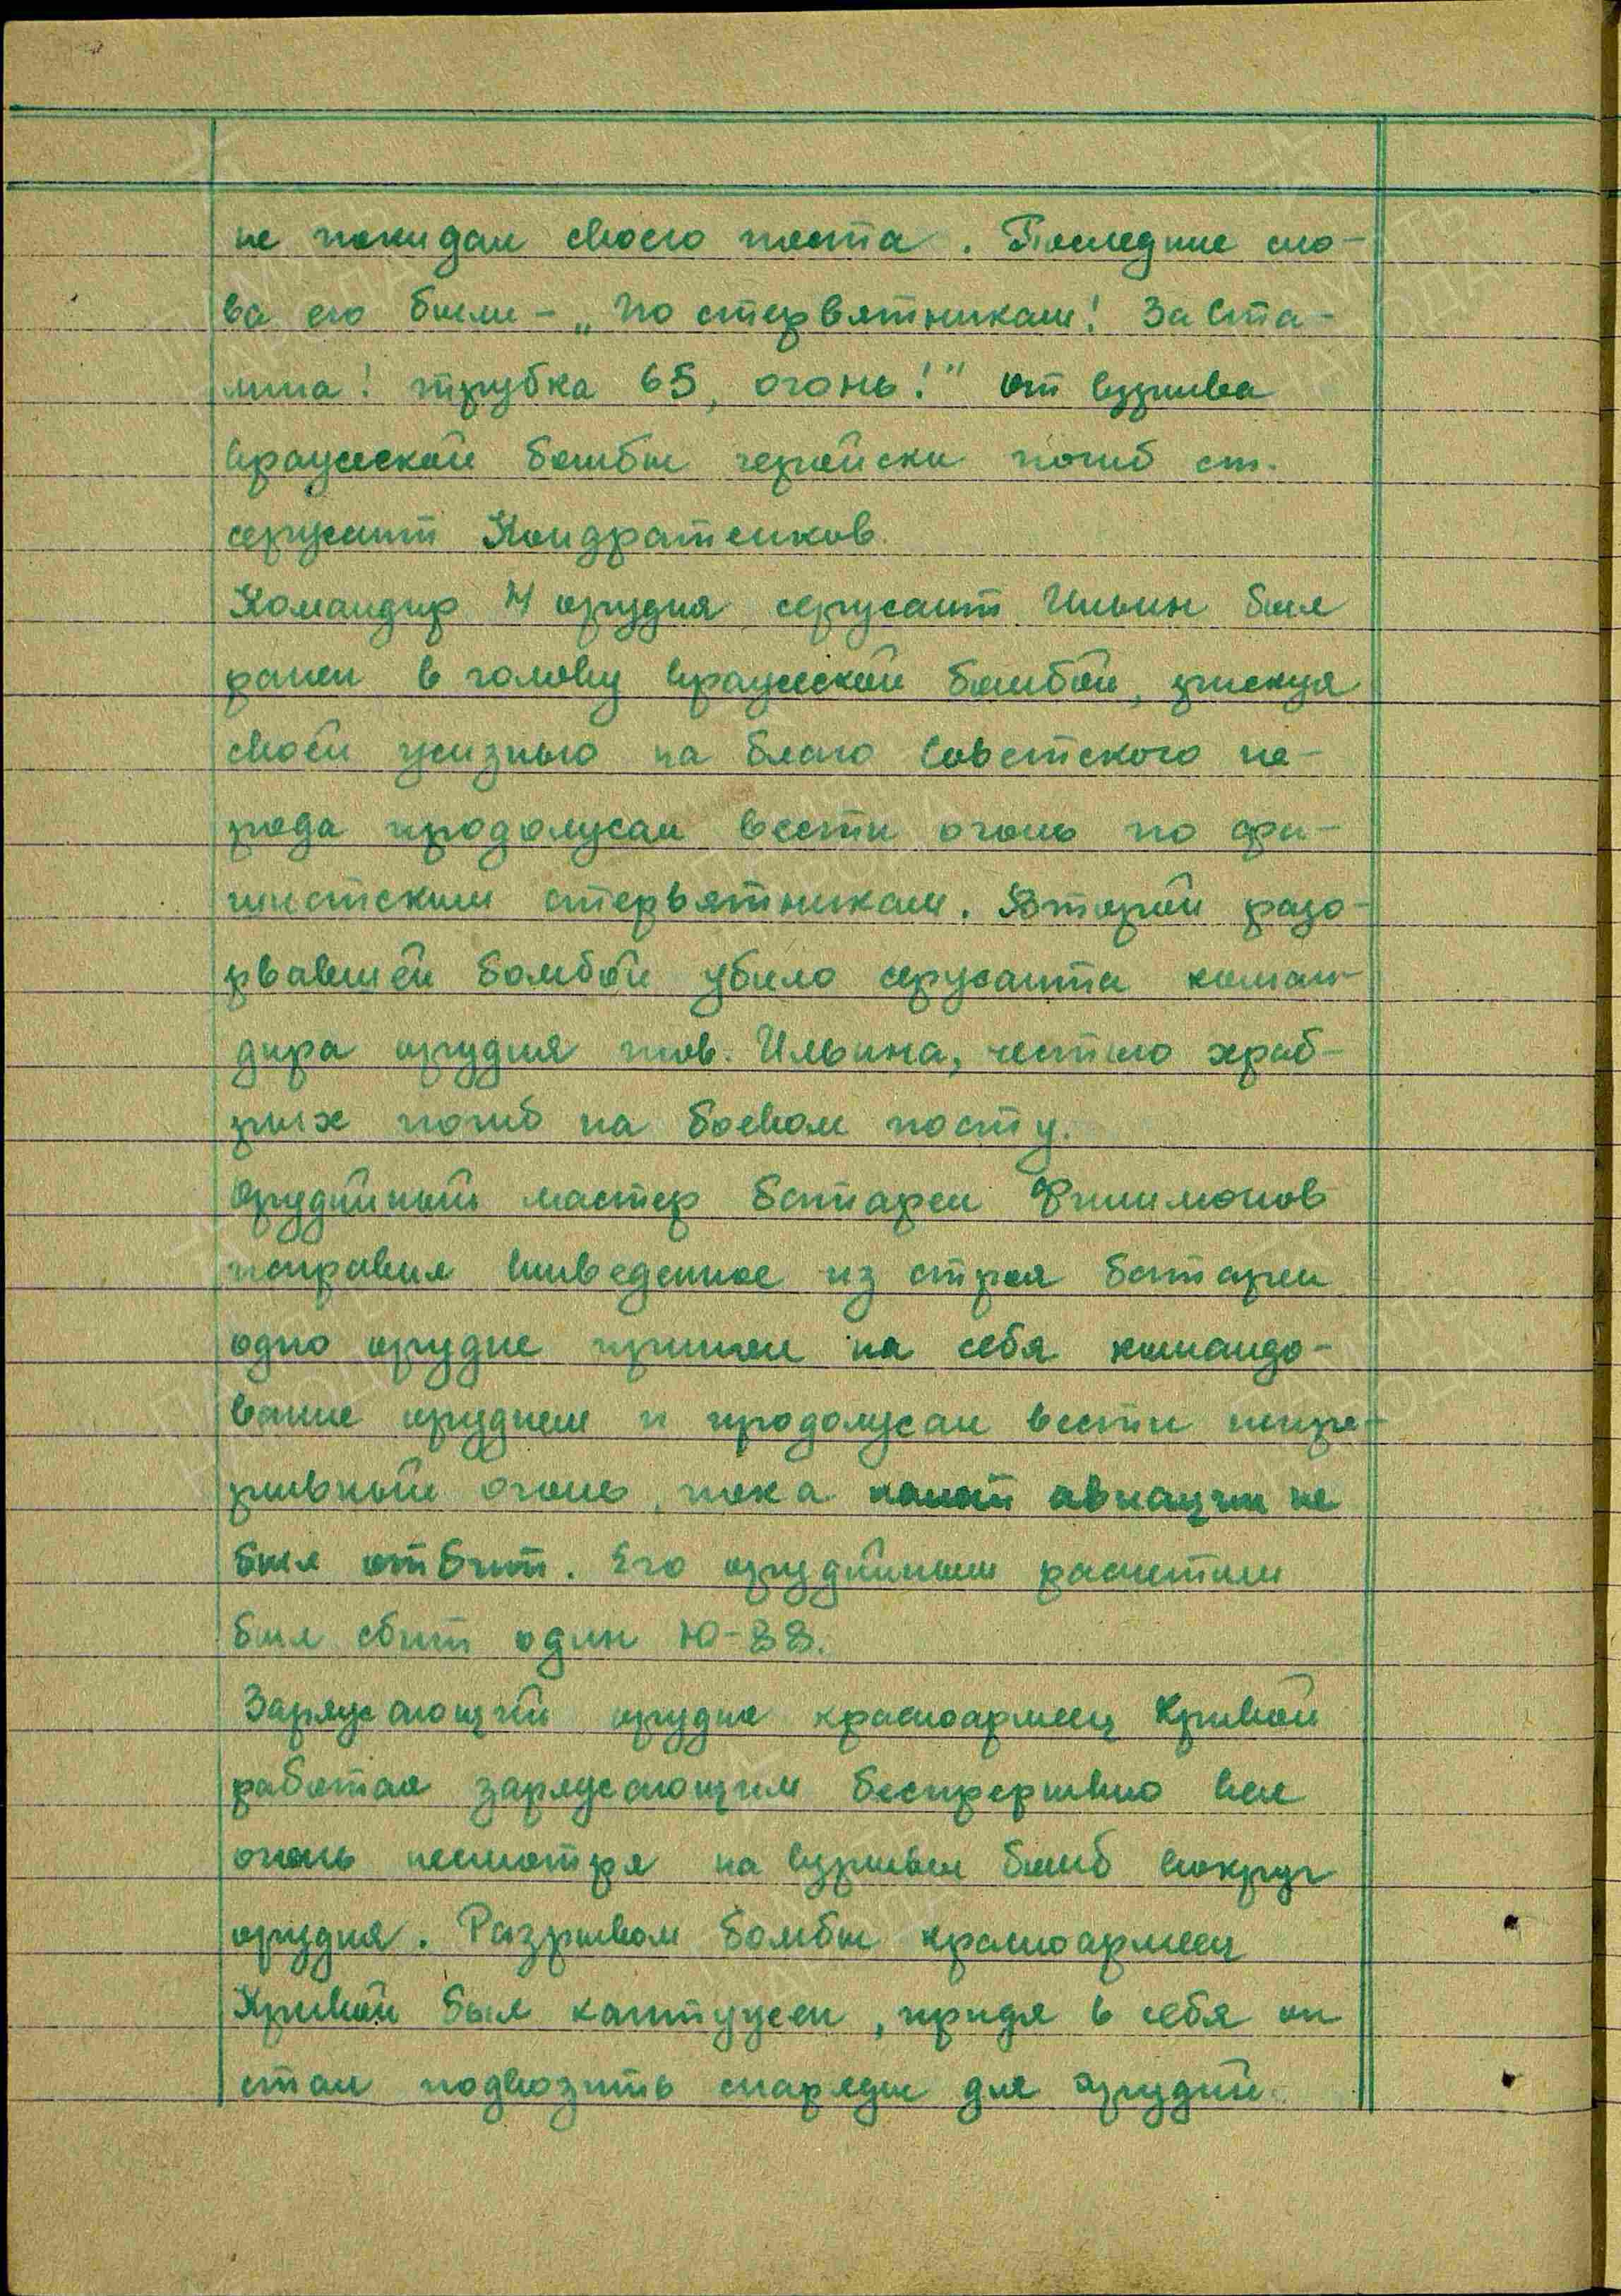 не покидал своего поста. Последние сло-
ва его были - „по стервятникам! За Ста-
лина! трубка 65, огонь!" от взрыва
вражеской бомбы геройски погиб ст.
сержант Кондратенков.
Командир 4 орудия сержант Ильин был
ранен в голову вражеской бомбой, рискуя
своей жизнью на благо Советского на-
рода продолжал вести огонь по фа-
шистским стервятникам. Второй разо-
рвавшей бомбой убило сержанта коман-
дира орудия тов. Ильина, честью храб-
рых погиб на боевом посту.
Орудийный мастер батареи Филимонов
исправил выведенное из строя батареи
одно орудие принял на себя командо-
вание орудием и продолжал вести непре-
рывный огонь, пока налет авиации не
был отбит. Его орудийным расчетом
был сбит один Ю-88.
Заряжающий орудия красноармеец Кривой
работая заряжающим беспрерывно вел
огонь несмотря на взрывы бомб вокруг
орудия. Разрывом бомбы красноармеец
Кривой был контужен, придя в себя он
стал подвозить снаряды для орудий.
ПАМЯТЬ НАРОДА